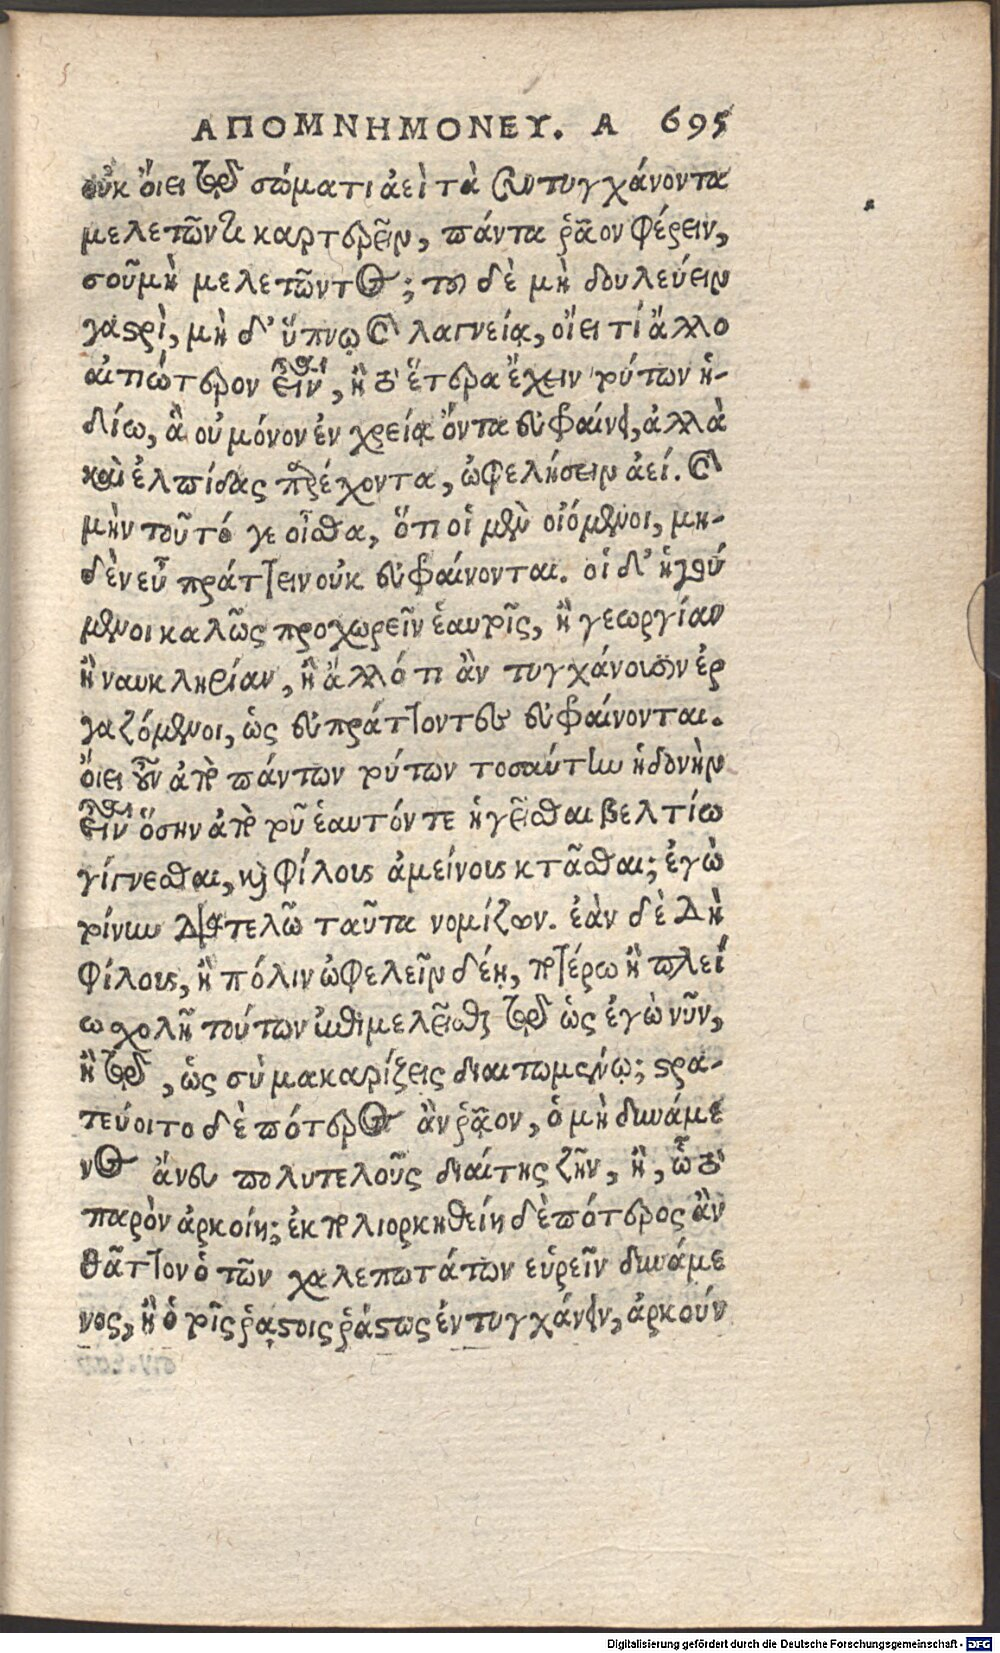 ΑΠΟΜΝΗΜΟΝΕΥ. Α 695
οὐκ ὄιει τῷ σώματι ἀεὶ τὰ συντυγχάνοντα
μελετῶντα καρτερεῖν, πάντα ῥᾷον φέρειν,
σοῦ μὴ μελετῶντος; τοῦ δὲ μὴ δουλεύειν
γαστρὶ, μὴ δ' ὕπνῳ καὶ λαγνείᾳ, οἴει τί ἄλλο
αἰτιώτερον εἶναι, ἢ τὸ ἕτερα ἔχειν τούτων ἡ-
δίω, ἃ οὐ μόνον ἐν χρείᾳ ὄντα εὐφραίνει, ἀλλὰ
καὶ ἐλπίδας παρέχοντα, ὠφελήσειν ἀεί. καὶ
μὴν τοῦτό γε οἶσθα, ὅτι οἱ μὲν οἰόμενοι, μη-
δὲν εὖ πράττειν οὐκ εὐφραίνονται. οἱ δ' ἡγού
μενοι καλῶς προχωρεῖν ἑαυτοῖς, ἢ γεωργίαν
ἢ ναυκληρίαν, ἢ ἄλλό τι ἂν τυγχάνουσιν ἐρ
γαζόμενοι, ὡς εὐπράττοντες εὐφραίνονται.
ὄιει οὖν ἀπὸ πάντων τούτων τοσαύτην ἡδονὴν
εἶναι ὅσην ἀπὸ τοῦ ἑαυτόν τε ἡγεῖσθαι βελτίω
γίγνεσθαι, καὶ φίλους ἀμείνους κτᾶσθαι; ἐγὼ
τοίνυν διατελῶ ταῦτα νομίζων. ἐὰν δὲ δὴ
φίλους, ἢ πόλιν ὠφελεῖν δέῃ, ποτέρῳ ἡ πλεί
ω σχολὴ τούτων ἐπιμελεῖσθαι τῷ ὡς ἐγὼ νῦν,
ἢ τῷ, ὡς σὺ μακαρίζεις διαιτωμένῳ; στρα-
τεύοιτο δὲ πότερος ἂν ῥᾷον, ὁ μὴ δυνάμε
νος ἄνευ πολυτελοῦς διαίτης ζῆν, ἢ, ᾧ τὸ
παρὸν ἀρκοίη; ἐκπολιορκηθείη δὲ πότερος ἂν
θᾶττον ὁ τῶν χαλεπωτάτων εὑρεῖν δυνάμε
νος, ἢ ὁ τοῖς ῥᾴστοις ῥᾴστως ἐντυγχάνειν, ἀρκούν
Digitalisierung gefördert durch die Deutsche Forschungsgemeinschaft - DFG